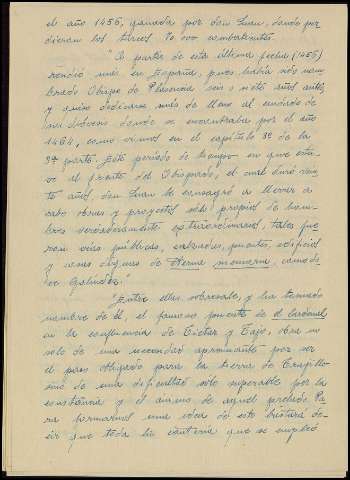 el año 1456, ganada por don Juan, donde per
dieron los turcos 70.000 combatientes.
"A partir de esta última fecha (1456)
residió más en España, pues había sido nom
brado Obispo de Plasencia seis o siete años antes
y quiso dedicarse más de lleno al cuidado de
su diócesis donde se encontraba por el año
1464, como vimos en el capítulo 3º de la
2ª parte. Este período de tiempo en que estu-
vo al frente del Obispado, el cual duró vein
te años, don Juan lo consagró a llevar a
cabo obras y proyectos sólo propios de hom
bres verdaderamente extraordinarios, tales fue
ron vías públicas, calzadas, puentes, edificios
y cosas dignas de eterna memoria, como di
ce Galíndez."
Entre ellas sobresale, y ha tomado
nombre de él, el famoso puente de el Cardenal
en la confluencia de Tietar y Tajo, obra no
solo de una necesidad apremiante por ser
el paso obligado para la tierra de Trujillo
sino de una dificultad solo superable por la
constancia y el ánimo de aquel prelado. Pa
ra formarnos una idea de esto bastará de-
cir que toda la cantería que se empleó